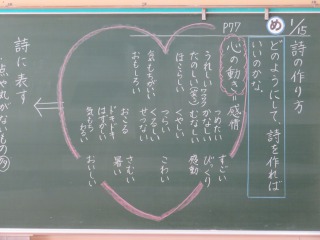 1/15
詩の作り方
め
どのようにして、詩を作れば
いいのかな。
P77
心の動き=感情
うれしい ワクワク つめたい
たのしい(笑) かなしい
はずらしい むなしい
くやしい
つらい
気もちがいい せつない
おもしろい くるしい
おこる
ドキドキ
はずかしい
気もちわるい
すごい
びっくり
感動
こわい
さむい
暑い
おいしい
詩に表す